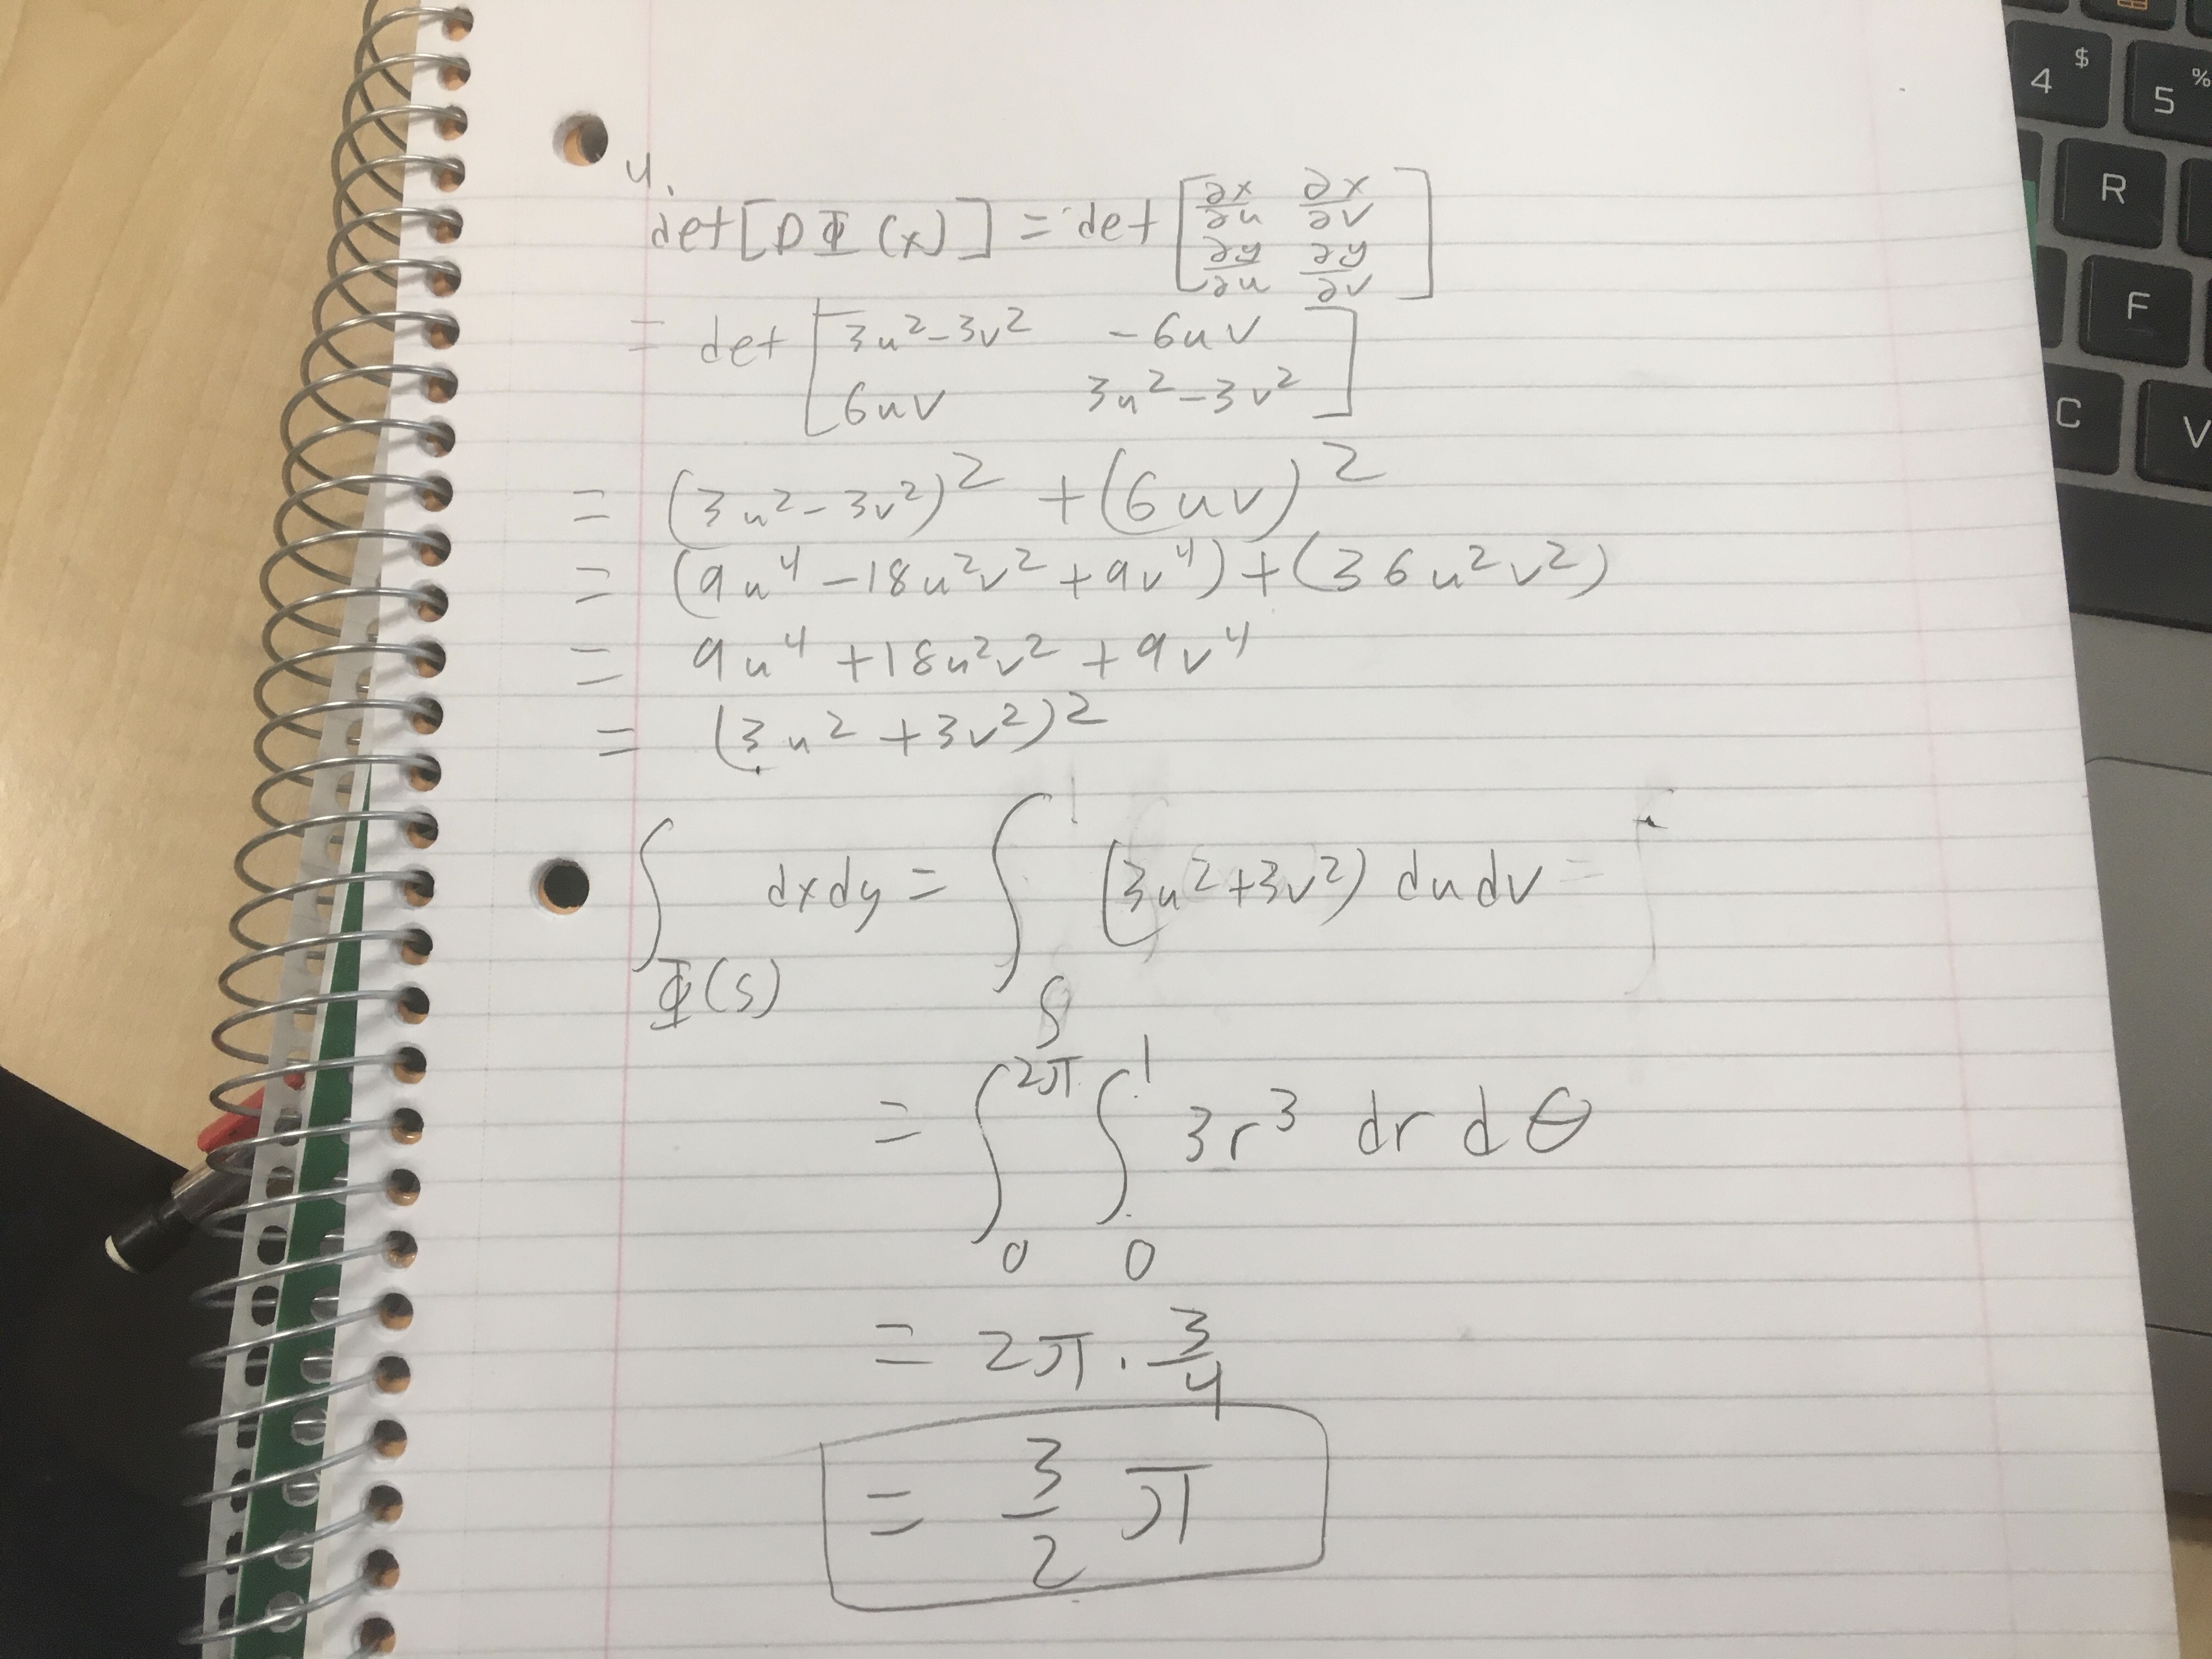 4.
det[DΦ(x)] = det [∂x/∂u ∂x/∂v
∂y/∂u ∂y/∂v]
= det [3u²-3v² -6uv
6uv 3u²-3v²]
= (3u²-3v²)² + (6uv)²
= (9u⁴ -18u²v² +9v⁴) + (36u²v²)
= 9u⁴ +18u²v² +9v⁴
= (3u² +3v²)²
∫_Φ(S) dxdy = ∫_S (3u²+3v²) du dv =
= ∫_0^2π ∫_0^1 3r³ dr dθ
= 2π · 3/4
= 3/2 π
4 $
5 %
R
F
C
V